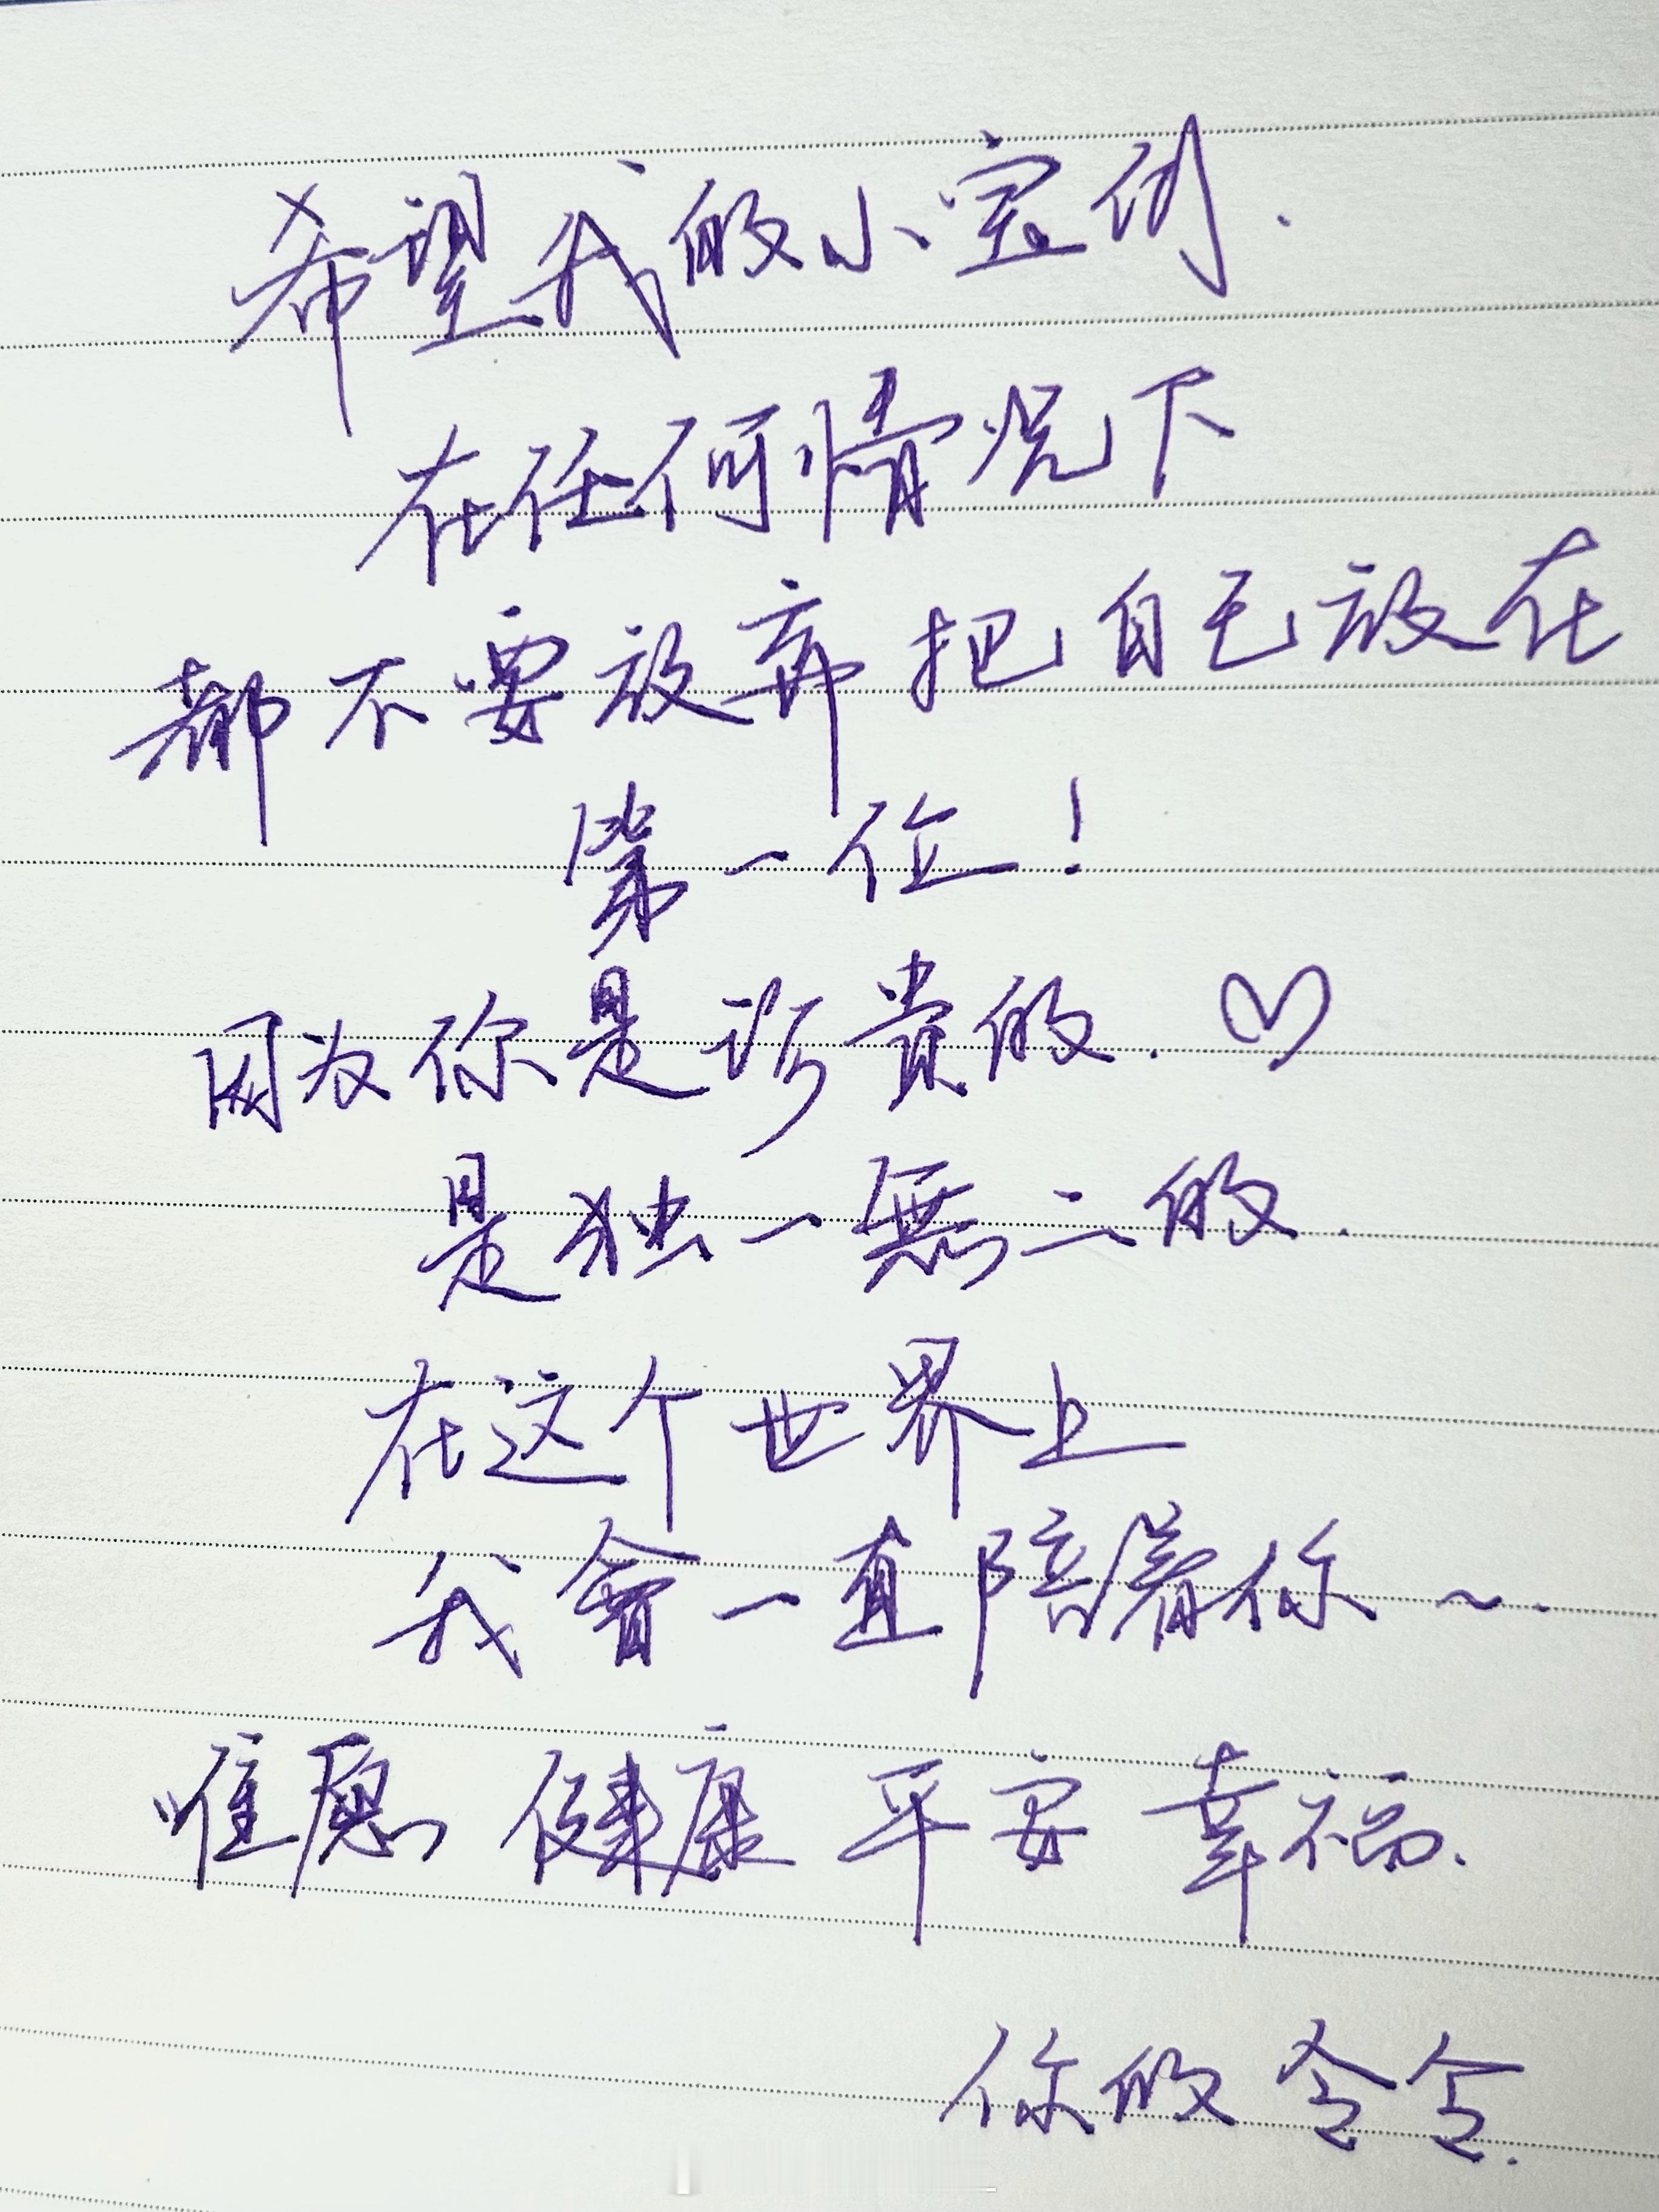 希望我的小宝们.
在任何情况下
都不要放弃把自己放在
第一位!
因为你是珍貴的.♡
是独一無二的.
在这个世界上
我會一直陪着你~.
唯愿 健康 平安 幸福.
你的令令.